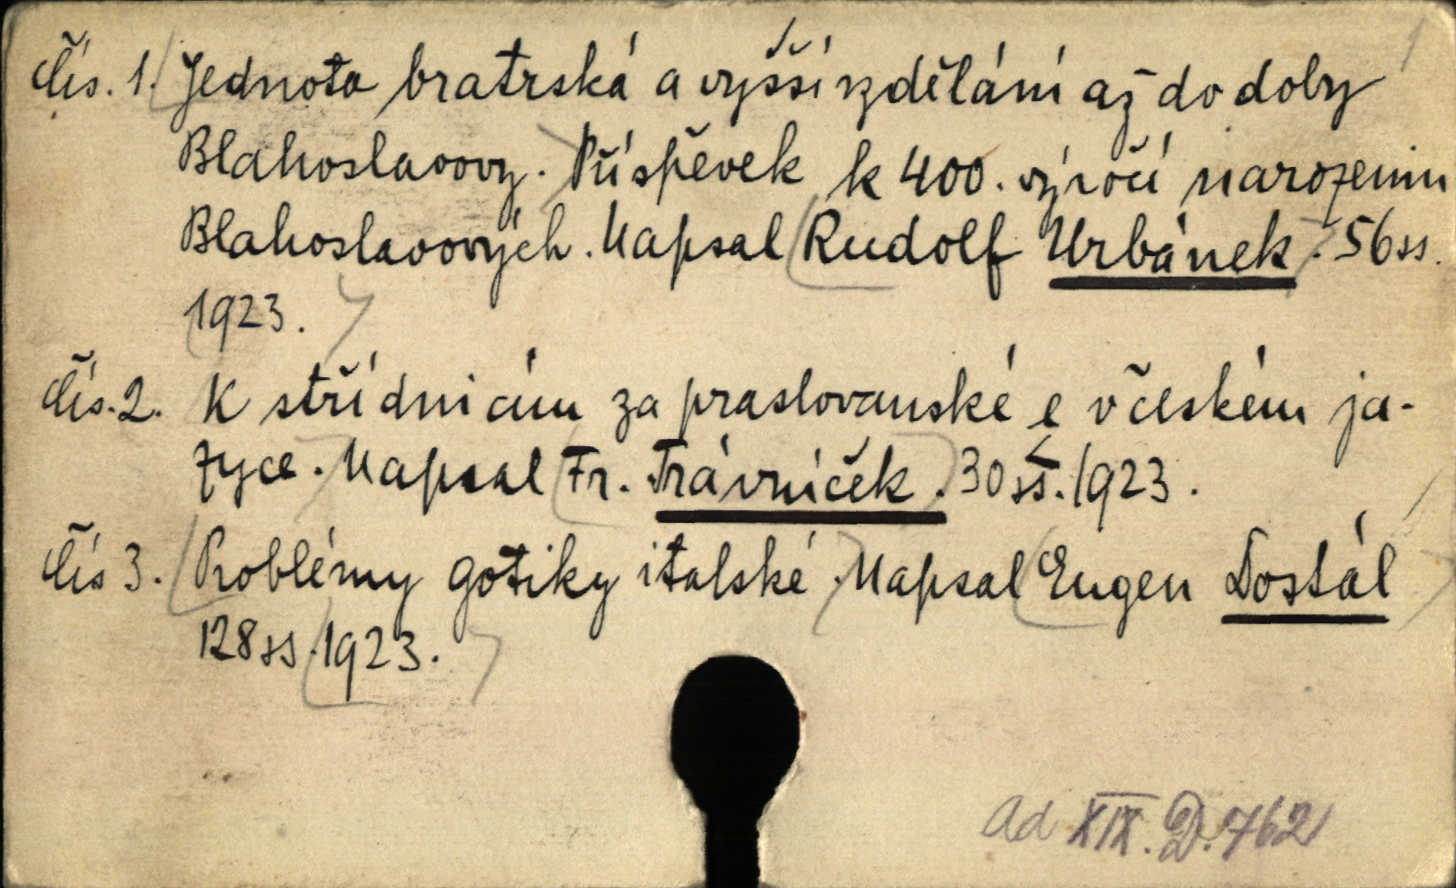 Čís. 1. Jednota bratrská a vyšší vzdělání až do doby
Blahoslavovy. Příspěvek k 400. výročí narozenin
Blahoslavových. Napsal Rudolf Urbánek. 56 ss.
1923.
Čís. 2. K střídnicím za praslovanské ě v českém ja-
zyce. Napsal Fr. Trávníček. 30 ss. 1923.
Čís 3. Problémy gotiky italské. Napsal Eugen Dostál
128 ss. 1923.
ad XIX. D. 762